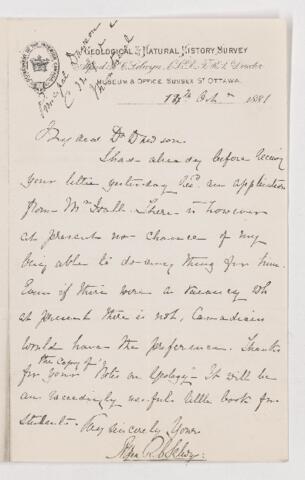 GEOLOGICAL & NATURAL HISTORY SURVEY
Alfred R. C. Selwyn, F.R.S. Director
MUSEUM & OFFICE, SUSSEX ST OTTAWA.
Principal Dawson
14th Octr 1881
My dear Dr Dawson.
I had already before receiving
your letter yesterday recd an application
from Mr
There is however
at present no chance of my
being able to do any thing for him
Even if there were a vacancy wh
at present there is not, Canadians
would have the preference. Thanks
for the copy of your "Notes on Geology" It will be
an exceedingly useful little book for
students.
Very sincerely Yours
Alfred R. C. Selwyn